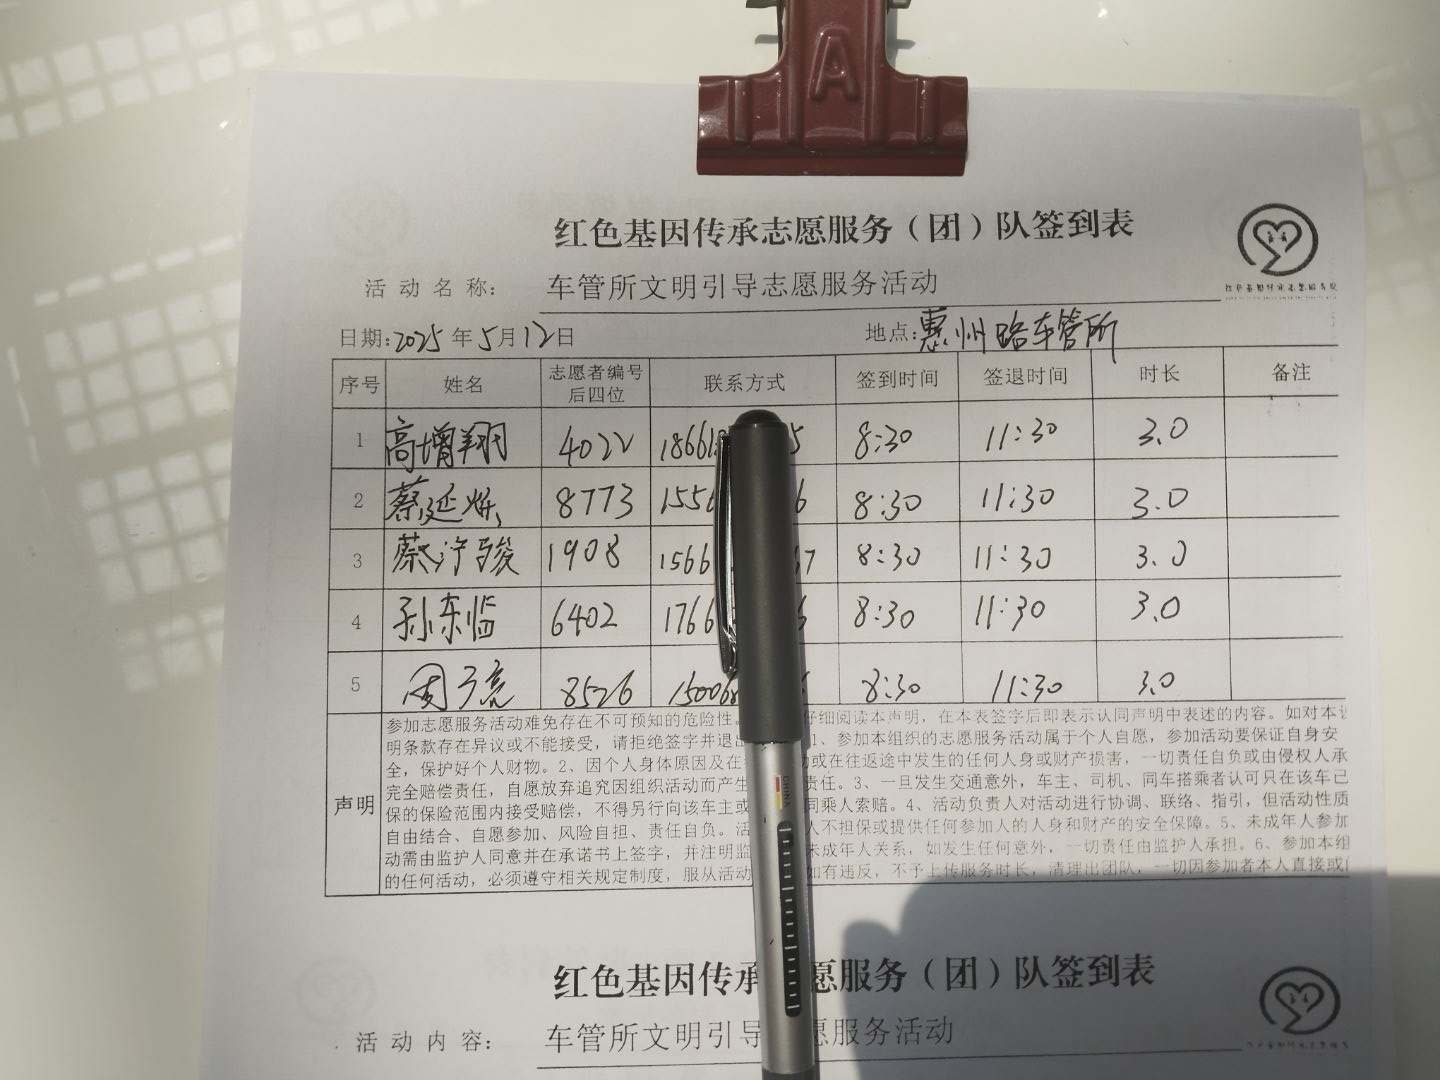 A
红色基因传承志愿服务（团）队签到表
活动名称： 车管所文明引导志愿服务活动
日期:2025年5月12日 地点:惠州路车管所
序号 姓名 志愿者编号后四位 联系方式 签到时间 签退时间 时长 备注
1 高增翔 4022 1866 5 8:30 11:30 3.0
2 蔡延 8773 155 6 8:30 11:30 3.0
3 蔡 骏 1908 1566 7 8:30 11:30 3.0
4 孙东 6402 1766 8:30 11:30 3.0
5 周 亮 8526 1500 8:30 11:30 3.0
声明
参加志愿服务活动难免存在不可预知的危险性。 仔细阅读本声明，在本表签字后即表示认同声明中表述的内容。如对本
明条款存在异议或不能接受，请拒绝签字并退出 1、参加本组织的志愿服务活动属于个人自愿，参加活动要保证自身安
全，保护好个人财物。2、因个人身体原因及在 动或在往返途中发生的任何人身或财产损害，一切责任自负或由侵权人承
完全赔偿责任，自愿放弃追究因组织活动而产生 责任。3、一旦发生交通意外，车主、司机、同车搭乘者认可只在该车已
保的保险范围内接受赔偿，不得另行向该车主或 同乘人索赔。4、活动负责人对活动进行协调、联络、指引，但活动性质
自由结合、自愿参加、风险自担、责任自负。活 人不担保或提供任何参加人的人身和财产的安全保障。5、未成年人参加
动需由监护人同意并在承诺书上签字，并注明监 未成年人关系，如发生任何意外，一切责任由监护人承担。6、参加本组
的任何活动，必须遵守相关规定制度，服从活动 如有违反，不予上传服务时长，清理出团队，一切因参加者本人直接或
CHINA
红色基因传承 愿服务（团）队签到表
活动内容： 车管所文明引导 愿服务活动